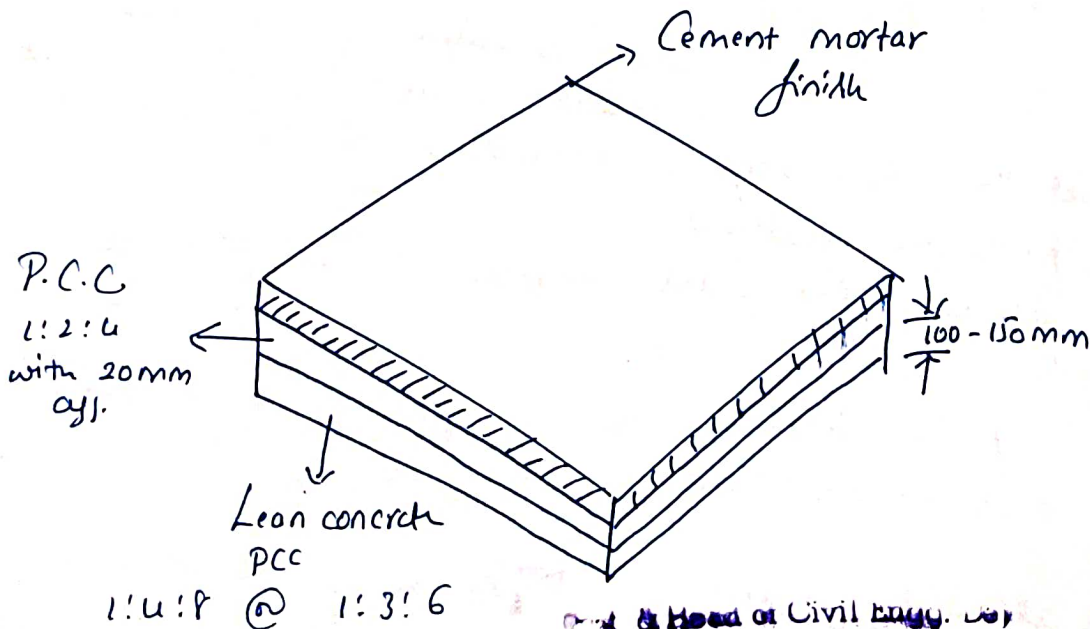 Cement mortar
finish
P.C.C
1:2:4
with 20mm
agg.
100-150mm
Lean concrete
PCC
1:4:8 @ 1:3:6
& Head of Civil Engg.